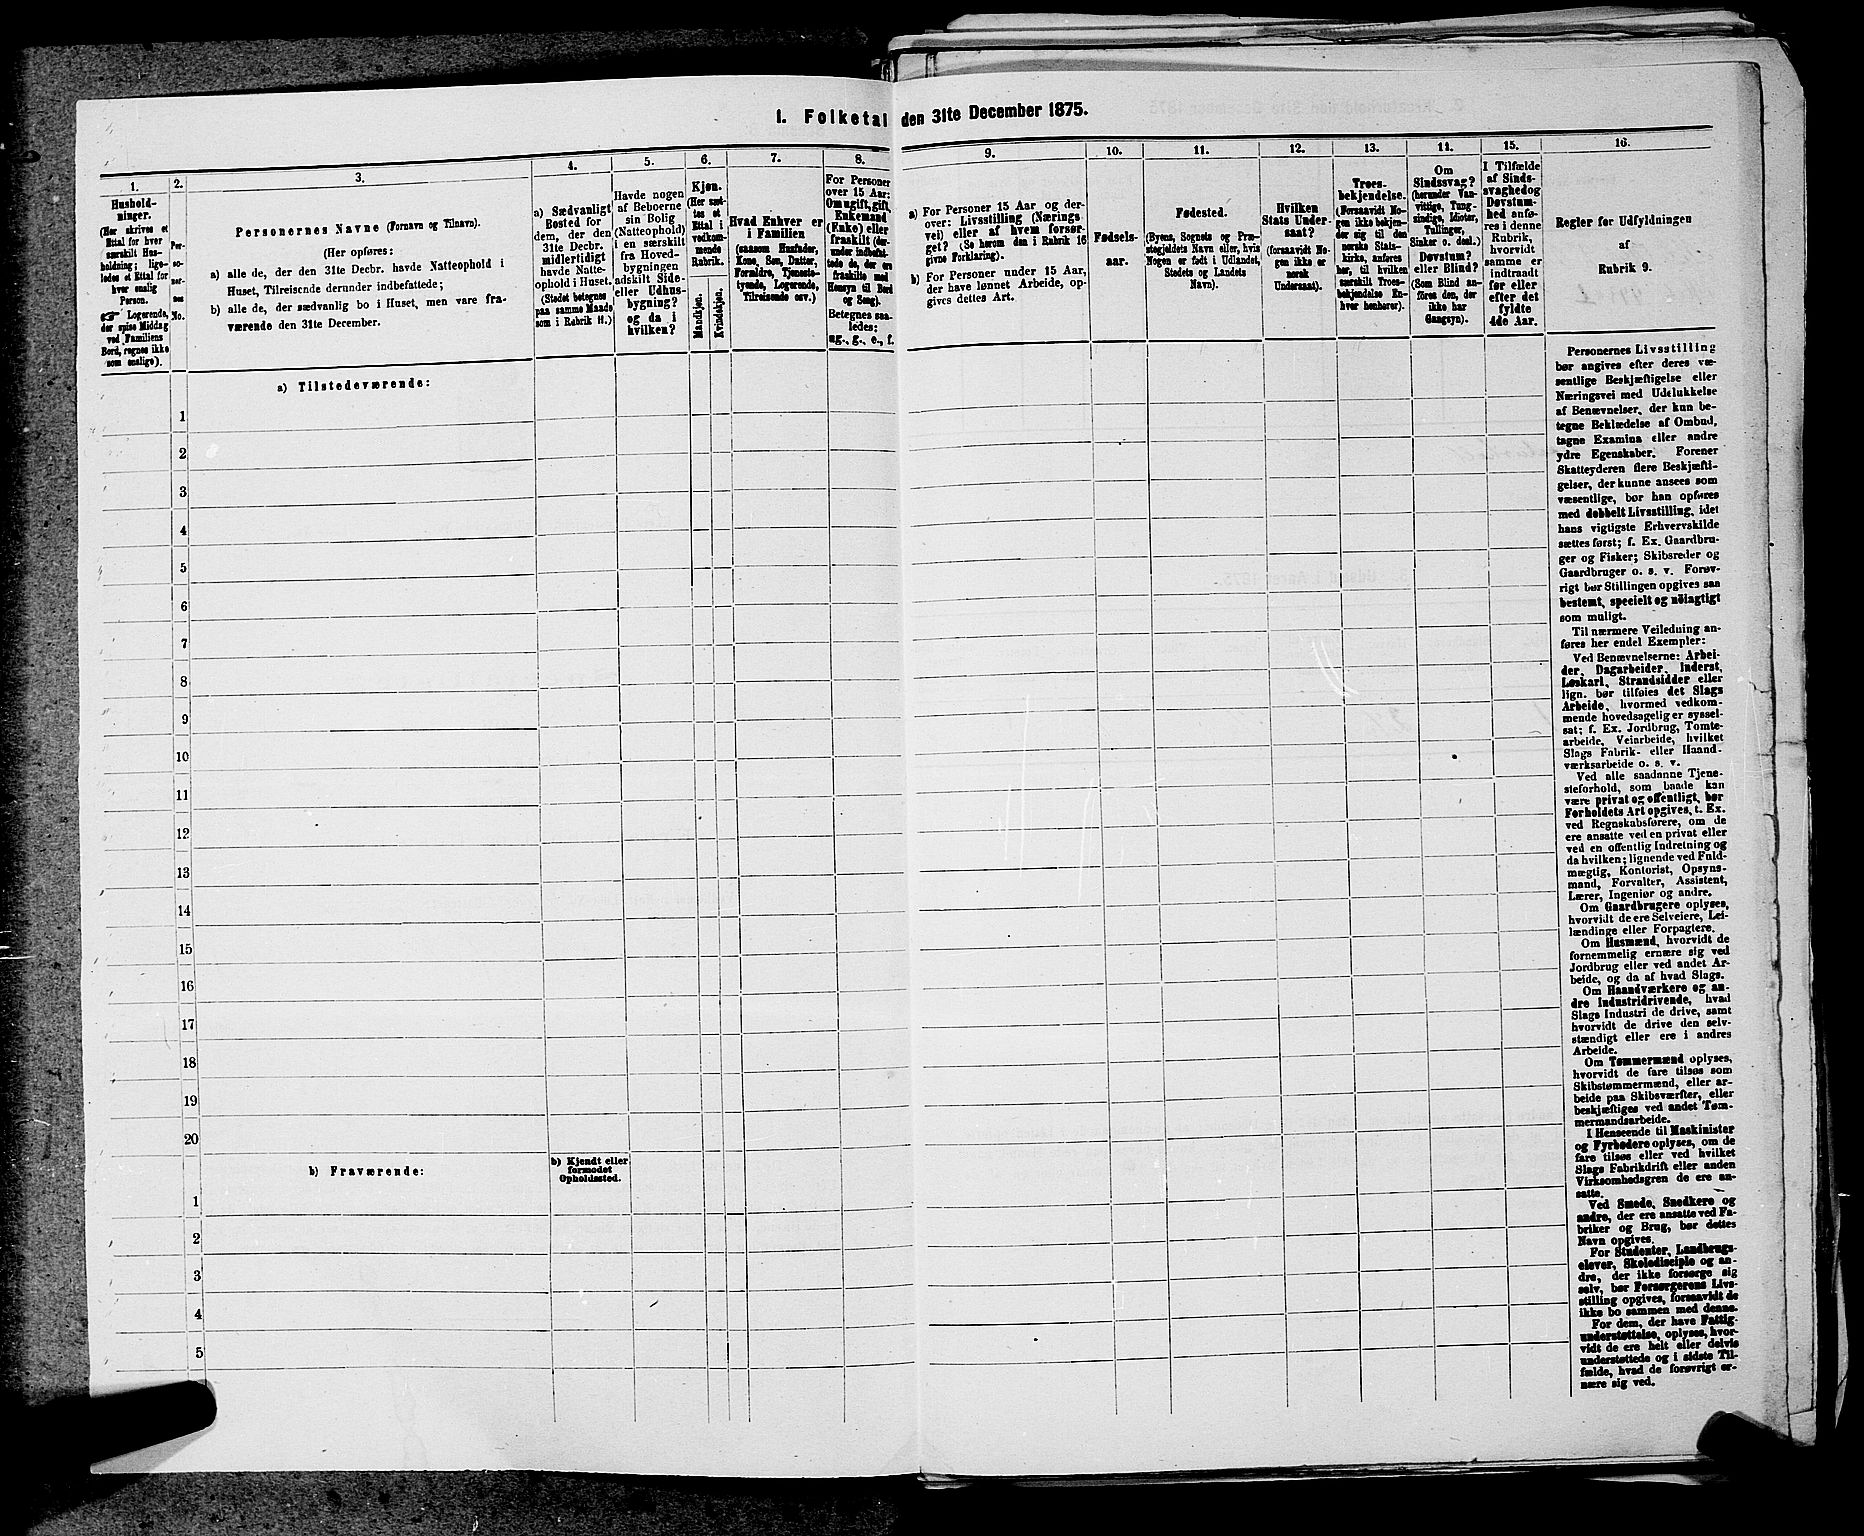 I. Folketal den 31te December 1875.
1.
Hushold-
ninger.
(Her skrives et
Ettal for hver
særskilt Hus-
holdning; lige-
ledes et Ettal for
hver enslig
Person.
☞ Logerende,
der spise Middag
ved Familiens
Bord, regnes ikke
som enslige).
2.
Per-
so-
ner-
nes
No.
3.
Personernes Navne (Fornavn og Tilnavn).
(Her opføres:
a) alle de, der den 31te Decbr. havde Natteophold i
Huset, Tilreisende derunder indbefattede;
b) alle de, der sædvanlig bo i Huset, men vare fra-
værende den 31te December.
4.
a) Sædvanligt
Bosted for
dem, der den
31te Decbr.
midlertidigt
havde Natte-
ophold i Huset.
(Stedet betegnes
paa samme Maade
som i Rubrik 11.)
5.
Havde nogen
af Beboerne
sin Bolig
(Natteophold)
i en særskilt
fra Hoved-
bygningen
adskilt Side-
eller Udhus-
bygning?
og da i
hvilken?
6.
Kjøn.
(Her sæt-
tes et
Ettal i
vedkom-
mende
Rubrik.
Mandkjøn.
Kvindekjøn.
7.
Hvad Enhver er
i Familien
(saasom Husfader,
Kone, Søn, Datter,
Forældre, Tjeneste-
tyende, Logerende,
Tilreisende osv.)
8.
For Personer
over 15 Aar:
Om ugift, gift,
Enkemand
(Enke) eller
fraskilt (der-
under indbefat-
tede de, der ere
fraskilte med
Hensyn til Bord
og Seng).
Betegnes saa-
ledes:
ug., g., e., f.
9.
a) For Personer 15 Aar og der-
over: Livsstilling (Nærings-
vei) eller af hvem forsør-
get? (Se herom den i Rubrik 16
givne Forklaring).
b) For Personer under 15 Aar,
der have lønnet Arbeide, op-
gives dettes Art.
10.
Fødsels-
aar.
11.
Fødested.
(Byens, Sognets og Præ-
stegjeldets Navn eller, hvis
Nogen er født i Udlandet,
Stedets og Landets
Navn).
12.
Hvilken
Stats Under-
saat?
(forsaavidt No-
gen ikke er
norsk
Undersaat).
13.
Troes-
bekjendelse.
(Forsaavidt No-
gen ikke bekjen-
der sig til den
norske Stats-
kirke, anføres
her, til hvilken
særskilt Troes-
bekjendelse En-
hver henhører).
11.
Om
Sindssvag?
(herunder Van-
vittige, Tung-
sindige, Idioter,
Tullinger,
Sinker o. desl.)
Døvstum?
eller Blind?
(Som Blind an-
føres den, der
ikke har
Gangsyn).
15.
I Tilfælde
af Sinds-
svaghed og
Døvstum-
hed anfø-
res i denne
Rubrik,
hvorvidt
samme er
indtraadt
før eller
efter det
fyldte
4de Aar.
16.
Regler før Udfyldningen
af
Rubrik 9.
a) Tilstedeværende:
1
2
3
4
5
6
7
8
9
10
11
12
13
14
15
16
17
18
19
20
b) Fraværende:
b) Kjendt eller
formodet
Opholdssted.
1
2
3
4
5
Personernes Livsstilling
bør angives efter deres væ-
sentlige Beskjæftigelse eller
Næringsvei med Udelukkelse
af Benævnelser, der kun be-
tegne Beklædelse af Ombud,
tagne Examina eller andre
ydre Egenskaber. Forener
Skatteyderen flere Beskjæfti-
gelser, der kunne ansees som
væsentlige, bør han opføres
med dobbelt Livsstilling, idet
hans vigtigste Erhvervskilde
sættes først; f. Ex. Gaardbru-
ger og Fisker; Skibsreder og
Gaardbruger o. s. v. Forøv-
rigt bør Stillingen opgives saa
bestemt, specielt og nöiagtigt
som muligt.
Til nærmere Veiledning an-
føres her endel Exempler:
Ved Benævnelserne: Arbei-
der, Dagarbeider, Inderst,
Løskarl, Strandsidder eller
lign. bør tilføies det Slags
Arbeide, hvormed vedkom-
mende hovedsagelig er syssel-
sat; f. Ex. Jordbrug, Tomte-
arbeide, Veiarbeide, hvilket
Slags Fabrik- eller Haand-
værksarbeide o. s. v.
Ved alle saadanne Tjene-
steforhold, som baade kan
være privat og offentligt, bør
Forholdets Art opgives, t. Ex.
ved Regnskabsførere, om de
ere ansatte ved en privat eller
ved en offentlig Indretning og
da hvilken; lignende ved Fuld-
mægtig, Kontorist, Opsyns-
mand, Forvalter, Assistent,
Lærer, Ingeniør og andre.
Om Gaardbrugere oplyses,
hvorvidt de ere Selveiere, Lei-
lændinge eller Forpagtere.
Om Husmænd, hvorvidt de
fornemmelig ernære sig ved
Jordbrug eller ved andet Ar-
beide, og da af hvad Slags.
Om Haandværkere og an-
dre Industridrivende, hvad
Slags Industri de drive, samt
hvorvidt de drive den selv-
stændigt eller ere i andres
Arbeide.
Om Tømmermænd oplyses,
hvorvidt de fare tilsøs som
Skibstømmermænd, eller ar-
beide paa Skibsværfter, eller
beskjæftiges ved andet Tøm-
mermandsarbeide.
I Henseende til Maskinister
og Fyrbødere oplyses, om de
fare tilsøs eller ved hvilket
Slags Fabrikdrift eller anden
Virksomhedsgren de ere an-
satte.
Ved Smede, Snedkere og
andre, der ere ansatte ved Fa-
briker og Brug, bør dettes
Navn opgives.
For Studenter, Landbrugs-
elever, Skoledisciple og an-
dre, der ikke forsørge sig
selv, bør Forsørgerens Livs-
stilling opgives, forsaavidt de
ikke bo sammen med denne.
For dem, der have Fattig-
understøttelse, oplyses, hvor-
vidt de ere helt eller delvis
understøttede og i sidste Til-
fælde, hvad de forøvrigt er-
nære sig ved.